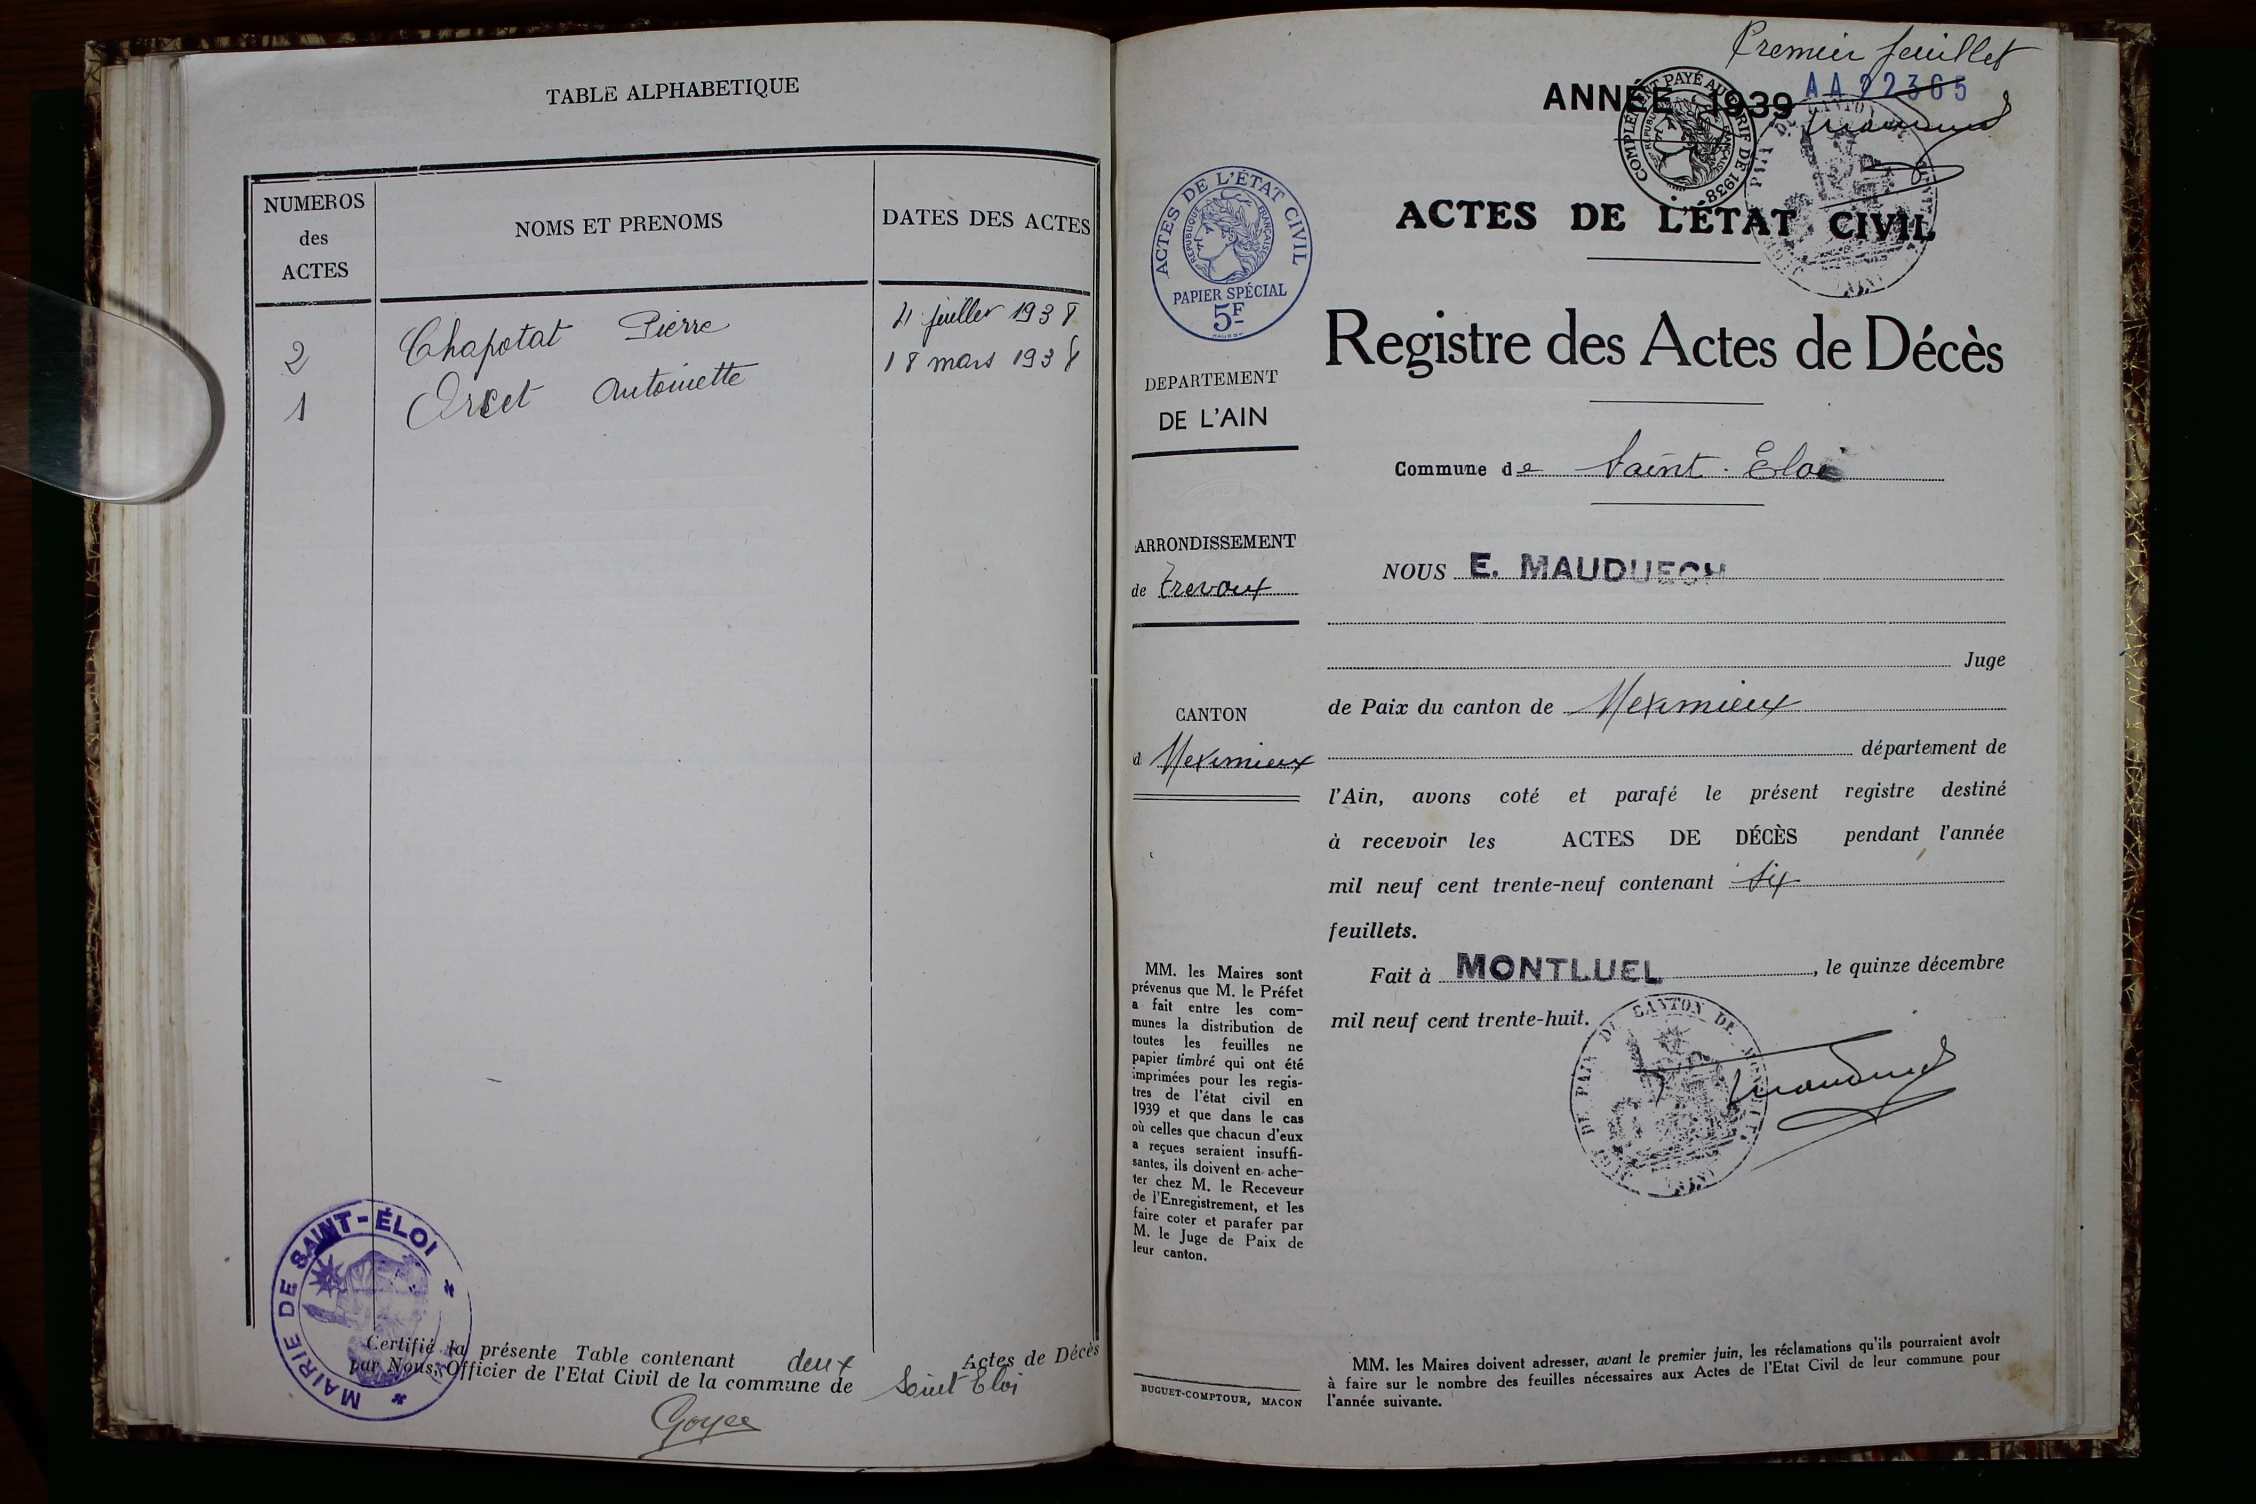 TABLE ALPHABETIQUE
NUMEROS
des
ACTES
NOMS ET PRENOMS
DATES DES ACTES
2 Chapotat Pierre 4 juillet 1938
1 Orset Antoinette 18 mars 1938
MAIRIE DE SAINT-ÉLOI
Certifié la présente Table contenant deux Actes de Décès
par Nous, Officier de l'Etat Civil de la commune de Saint Eloi
Premier feuillet
ANNÉE 1939
AA 22365
COMPLÉMENT PAYÉ AU TARIF DE 1938
ACTES DE L'ÉTAT CIVIL
RÉPUBLIQUE FRANÇAISE
PAPIER SPÉCIAL
5F
ACTES DE L'ÉTAT CIVIL
Registre des Actes de Décès
DEPARTEMENT
DE L'AIN
Commune de Saint-Eloi
ARRONDISSEMENT
de Trevoux
CANTON
d Meximieux
NOUS E. MAUDUECH
Juge
de Paix du canton de Meximieux
département de
l'Ain, avons coté et parafé le présent registre destiné
à recevoir les ACTES DE DÉCÈS pendant l'année
mil neuf cent trente-neuf contenant six
feuillets.
Fait à MONTLUEL, le quinze décembre
mil neuf cent trente-huit.
MM. les Maires sont
prévenus que M. le Préfet
a fait entre les com-
munes la distribution de
toutes les feuilles ne
papier timbré qui ont été
imprimées pour les regis-
tres de l'état civil en
1939 et que dans le cas
où celles que chacun d'eux
a reçues seraient insuffi-
santes, ils doivent en ache-
ter chez M. le Receveur
de l'Enregistrement, et les
faire coter et parafer par
M. le Juge de Paix de
leur canton.
BUGUET-COMPTOUR, MACON
MM. les Maires doivent adresser, avant le premier juin, les réclamations qu'ils pourraient avoir
à faire sur le nombre des feuilles nécessaires aux Actes de l'Etat Civil de leur commune pour
l'année suivante.